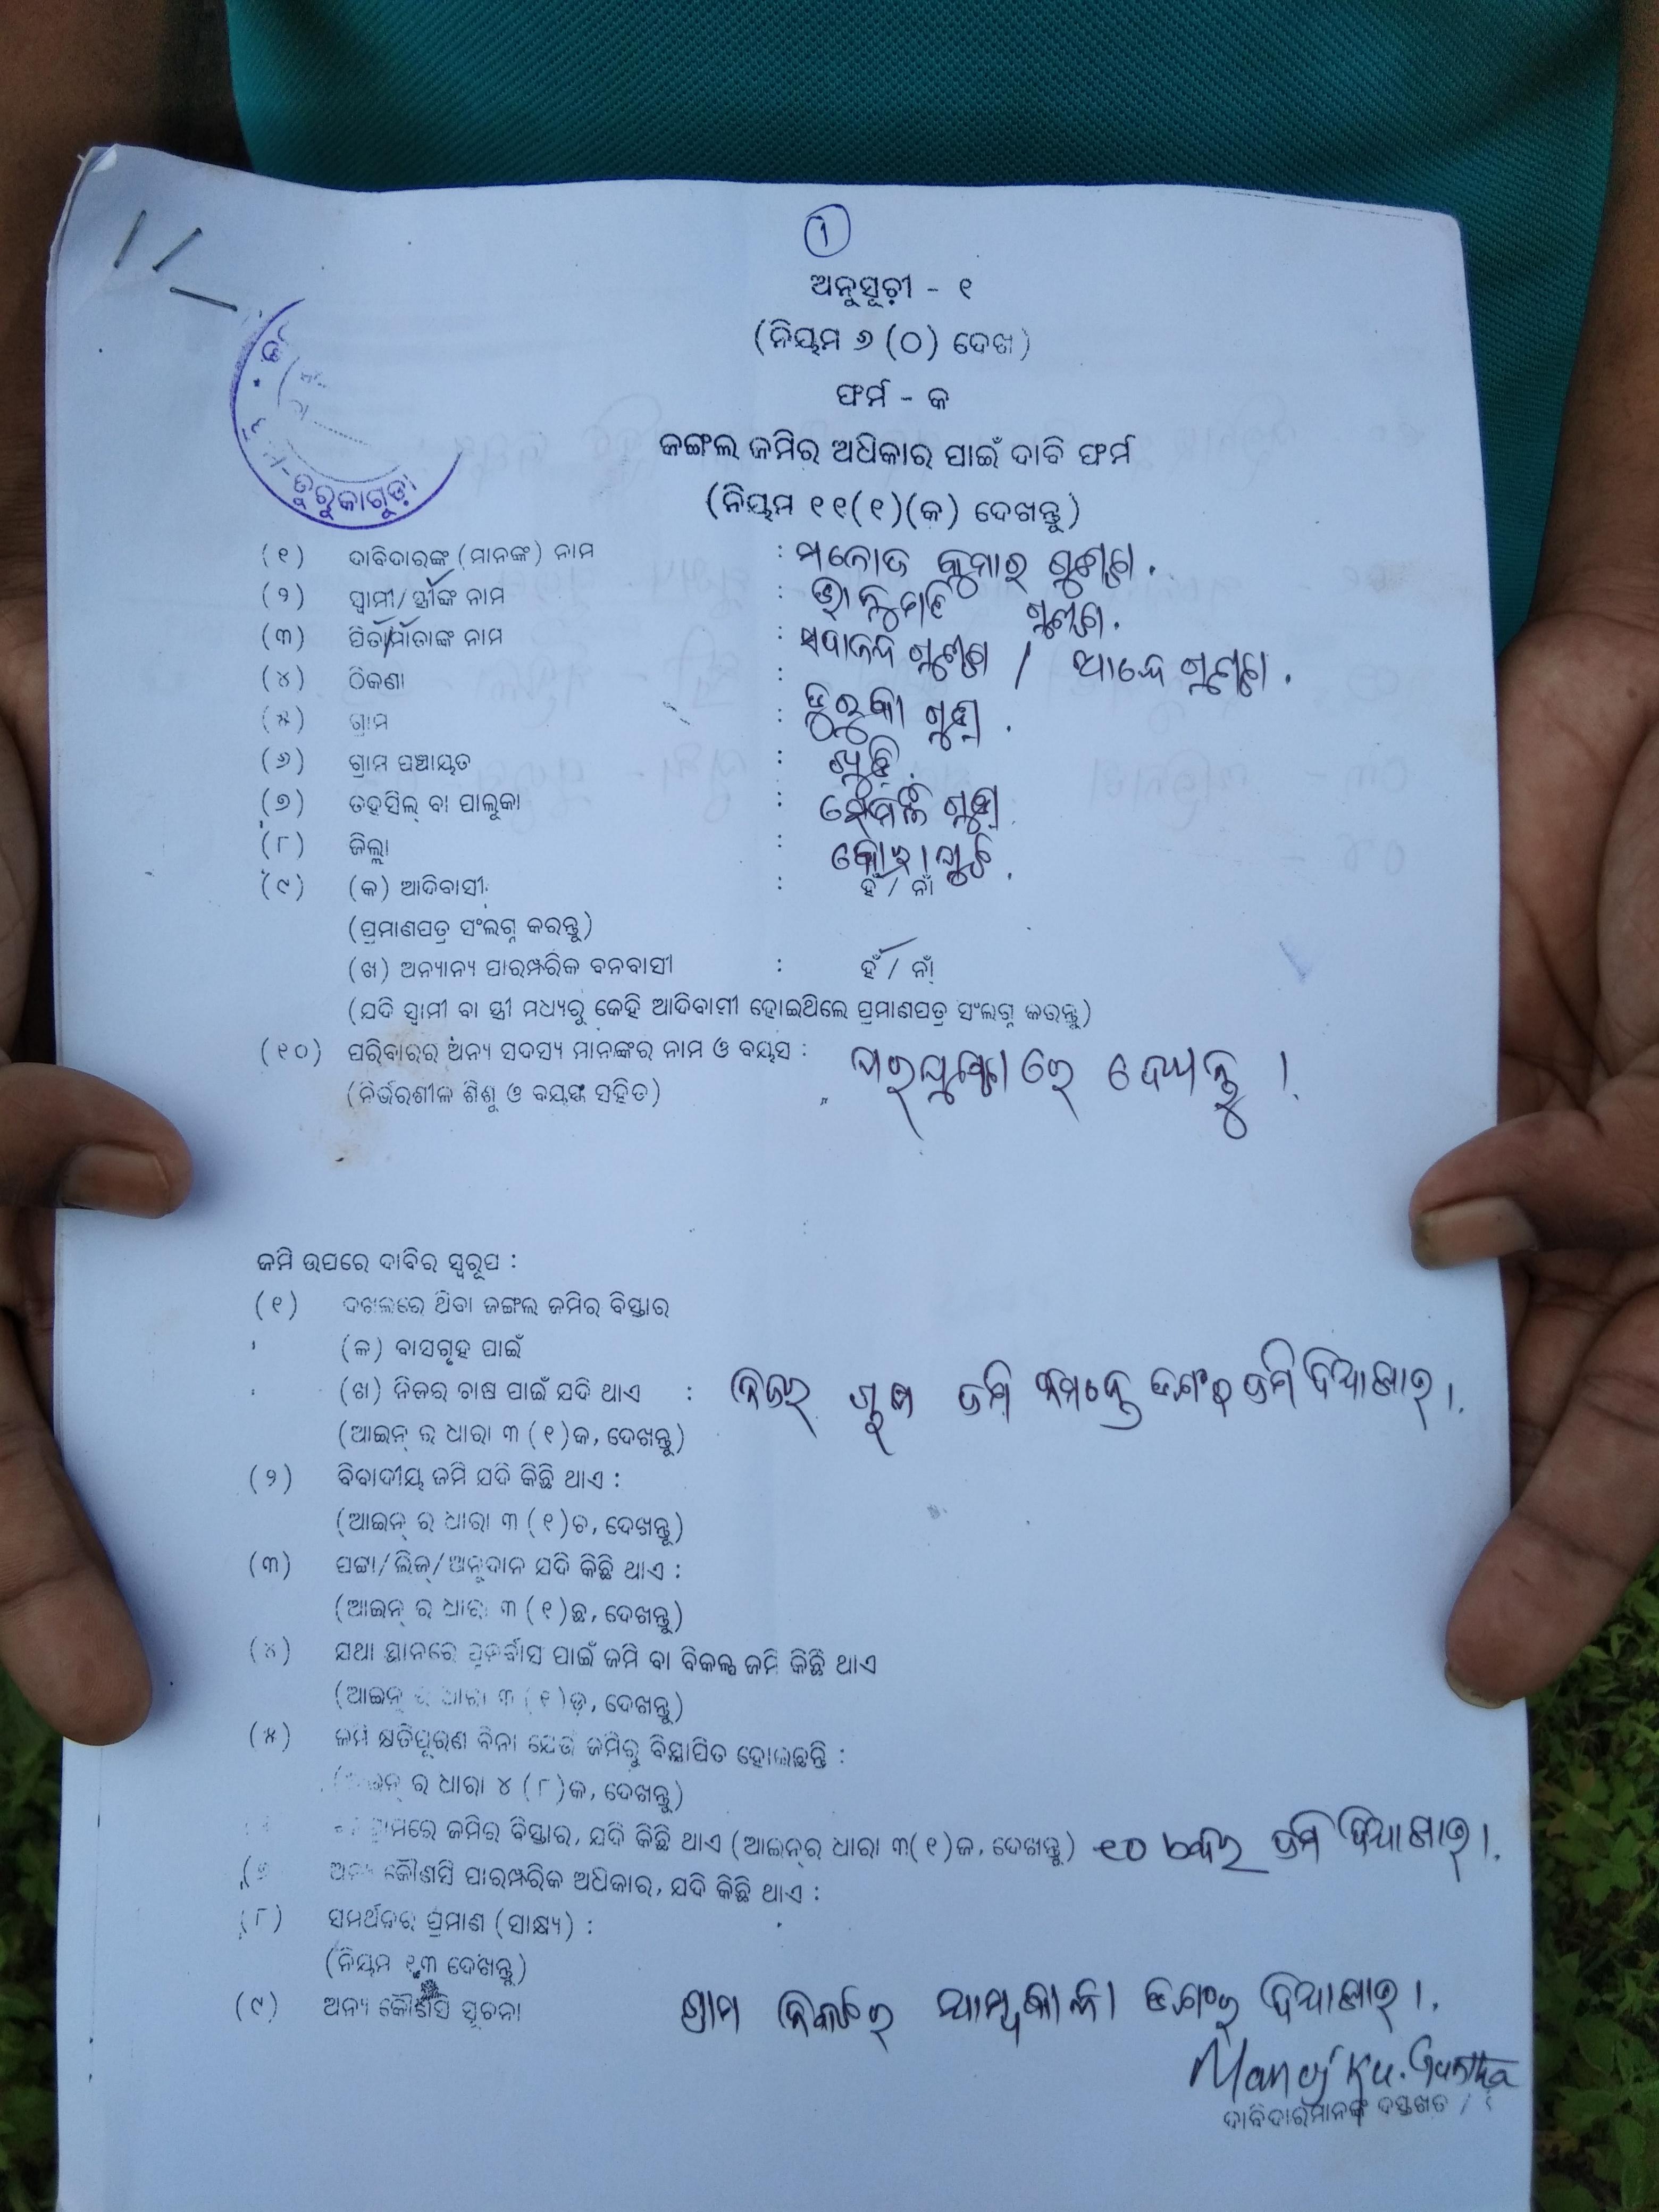 1
ଅନୁସୂଚୀ - ୧
(ନିୟମ ୬ (୦) ଦେଖ)
ଫର୍ମ - କ
ଜଙ୍ଗଲ ଜମିର ଅଧିକାର ପାଇଁ ଦାବି ଫର୍ମ
(ନିୟମ ୧୧(୧)(କ) ଦେଖନ୍ତୁ)
ତୁରୁକାଗୁଡ଼ା
(୧) ଦାବିଦାରଙ୍କ (ମାନଙ୍କ) ନାମ : ମନୋଜ କୁମାର ଗୁଣ୍ଠା.
(୨) ସ୍ୱାମୀ/ସ୍ତ୍ରୀଙ୍କ ନାମ : ଗୁଣ୍ଠା.
(୩) ପିତା/ମାତାଙ୍କ ନାମ : ସଦାନନ୍ଦ ଗୁଣ୍ଠା / ଗୁଣ୍ଠା.
(୪) ଠିକଣା :
(୫) ଗ୍ରାମ : ତୁରୁକା ଗୁଡ଼ା.
(୬) ଗ୍ରାମ ପଞ୍ଚାୟତ :
(୭) ତହସିଲ୍ ବା ପାଲୁକା : ସେମିଳି ଗୁଡ଼ା
(୮) ଜିଲ୍ଲା : କୋରାପୁଟ.
(୯) (କ) ଆଦିବାସୀ : ହଁ / ନାଁ
(ପ୍ରମାଣପତ୍ର ସଂଲଗ୍ନ କରନ୍ତୁ)
(ଖ) ଅନ୍ୟାନ୍ୟ ପାରମ୍ପରିକ ବନବାସୀ : ହଁ / ନାଁ
(ଯଦି ସ୍ୱାମୀ ବା ସ୍ତ୍ରୀ ମଧ୍ୟରୁ କେହି ଆଦିବାସୀ ହୋଇଥିଲେ ପ୍ରମାଣପତ୍ର ସଂଲଗ୍ନ କରନ୍ତୁ)
(୧୦) ପରିବାରର ଅନ୍ୟ ସଦସ୍ୟ ମାନଙ୍କର ନାମ ଓ ବୟସ : ପରପୃଷ୍ଠାରେ ଦେଖନ୍ତୁ ।
(ନିର୍ଭରଶୀଳ ଶିଶୁ ଓ ବୟସ୍କ ସହିତ)
ଜମି ଉପରେ ଦାବିର ସ୍ୱରୂପ :
(୧) ଦଖଲରେ ଥିବା ଜଙ୍ଗଲ ଜମିର ବିସ୍ତାର
(କ) ବାସଗୃହ ପାଇଁ
(ଖ) ନିଜର ଚାଷ ପାଇଁ ଯଦି ଥାଏ : ନିଜର ଜମି ନିମନ୍ତେ ଜମି ଦିଆଯାଉ ।
(ଆଇନ୍ ର ଧାରା ୩ (୧)କ, ଦେଖନ୍ତୁ)
(୨) ବିବାଦୀୟ ଜମି ଯଦି କିଛି ଥାଏ :
(ଆଇନ୍ ର ଧାରା ୩ (୧)ଚ, ଦେଖନ୍ତୁ)
(୩) ପଟ୍ଟା/ଲିଜ୍/ଅନୁଦାନ ଯଦି କିଛି ଥାଏ :
(ଆଇନ୍ ର ଧାରା ୩ (୧)ଛ, ଦେଖନ୍ତୁ)
(୪) ଯଥା ସ୍ଥାନରେ ପୁନର୍ବାସ ପାଇଁ ଜମି ବା ବିକଳ୍ପ ଜମି କିଛି ଥାଏ
(ଆଇନ୍ ର ଧାରା ୩ (୧)ଡ, ଦେଖନ୍ତୁ)
(୫) ଜମି କ୍ଷତିପୂରଣ ବିନା ଯେଉଁ ଜମିରୁ ବିସ୍ଥାପିତ ହୋଇଛନ୍ତି :
(ଆଇନ୍ ର ଧାରା ୪ (୮)କ, ଦେଖନ୍ତୁ)
ଜମିର ବିସ୍ତାର, ଯଦି କିଛି ଥାଏ (ଆଇନ୍‌ର ଧାରା ୩(୧)ଜ, ଦେଖନ୍ତୁ) ୧୦ ଜମି ଦିଆଯାଉ ।
ଅନ୍ୟ କୌଣସି ପାରମ୍ପରିକ ଅଧିକାର, ଯଦି କିଛି ଥାଏ :
(୮) ସମର୍ଥନର ପ୍ରମାଣ (ସାକ୍ଷ୍ୟ) :
(ନିୟମ ୧୩ ଦେଖନ୍ତୁ)
(୯) ଅନ୍ୟ କୌଣସି ସୂଚନା ଗ୍ରାମ ନିକଟରେ ଦିଆଯାଉ ।
Manoj Ku. Guntha
ଦାବିଦାରମାନଙ୍କ ଦସ୍ତଖତ /